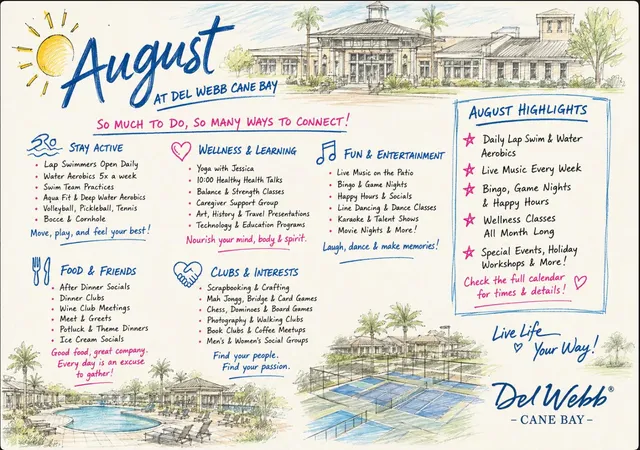 August
AT DEL WEBB CANE BAY
SO MUCH TO DO, SO MANY WAYS TO CONNECT!
STAY ACTIVE
• Lap Swimmers Open Daily
• Water Aerobics 5x a week
• Swim Team Practices
• Aqua Fit & Deep Water Aerobics
• Volleyball, Pickleball, Tennis
• Bocce & Cornhole
Move, play, and feel your best!
WELLNESS & LEARNING
• Yoga with Jessica
• 10:00 Healthy Health Talks
• Balance & Strength Classes
• Caregiver Support Group
• Art, History & Travel Presentations
• Technology & Education Programs
Nourish your mind, body & spirit.
FUN & ENTERTAINMENT
• Live Music on the Patio
• Bingo & Game Nights
• Happy Hours & Socials
• Line Dancing & Dance Classes
• Karaoke & Talent Shows
• Movie Nights & More!
Laugh, dance & make memories!
FOOD & FRIENDS
• After Dinner Socials
• Dinner Clubs
• Wine Club Meetings
• Meet & Greets
• Potluck & Theme Dinners
• Ice Cream Socials
Good food, great company.
Every day is an excuse
to gather!
CLUBS & INTERESTS
• Scrapbooking & Crafting
• Mah Jongg, Bridge & Card Games
• Chess, Dominoes & Board Games
• Photography & Walking Clubs
• Book Clubs & Coffee Meetups
• Men's & Women's Social Groups
Find your people.
Find your passion.
AUGUST HIGHLIGHTS
Daily Lap Swim & Water
Aerobics
Live Music Every Week
Bingo, Game Nights
& Happy Hours
Wellness Classes
All Month Long
Special Events, Holiday
Workshops & More!
Check the full calendar
for times & details!
Live Life
Your Way!
Del Webb®
- CANE BAY -